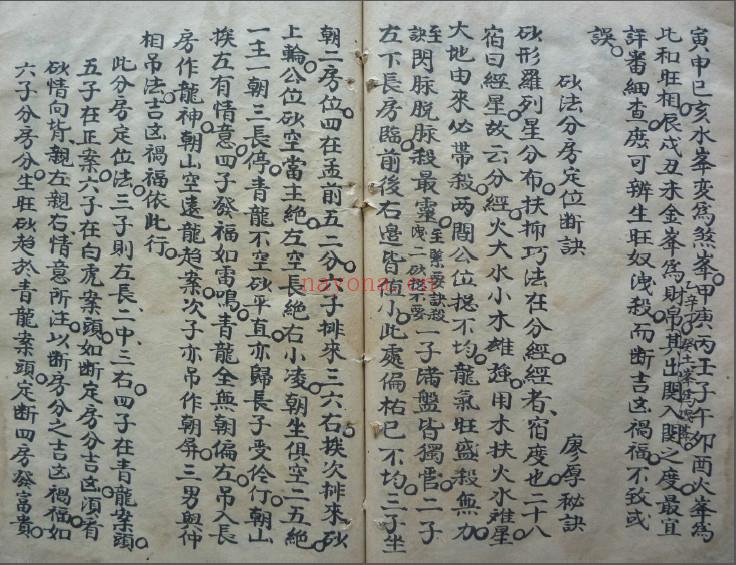 寅申巳亥水峯变爲煞峯甲庚丙壬子午卯酉火峯爲
乙辛丁癸土峯爲
比和旺相辰戌丑未金峯爲財帛其出関入関之度最宜
詳審細查庶可辨生旺奴洩殺而斷吉凶禍福不致或
誤
砂法分房定位断訣
廖厚秘訣
砂形羅列星分布扶抑巧法在分經經者宿度也二十八
宿曰經星故云分經火大水小木雄強用木扶火水难星
大地由来必帯殺两間公位挺不均龍氣旺盛殺無力
至訣閃脉脱脉殺最靈
至緊要訣殺
洩二砂挨不要
一子諸盤皆獨管二子
左下長房臨前後右邉皆值小此處偏枯已不均三子坐
朝二房位四在孟前五二分六子排来三六右挨次排来砂
上輪公位砂空當主絶左空長絶右小凌朝坐俱空二五絶
一主一朝三長停青龍不空砂平直亦歸長子受伶仃朝山
挨左有情意四子發福如雷鳴青龍全無朝偏左吊入長
房作龍神朝山空遠龍趋案次子亦吊作朝屏三男與仲
相吊法吉凶禍福依此行
此分房定位法三子則左長二中三右四子在青龍案頭
五子在正案六子在白虎案頭如断定房分吉凶須看
砂情向背親左親右情意所注以断房分之吉凶禍福如
六子分房分生旺砂趋於青龍案頭定断四房發富貴
navona.cn